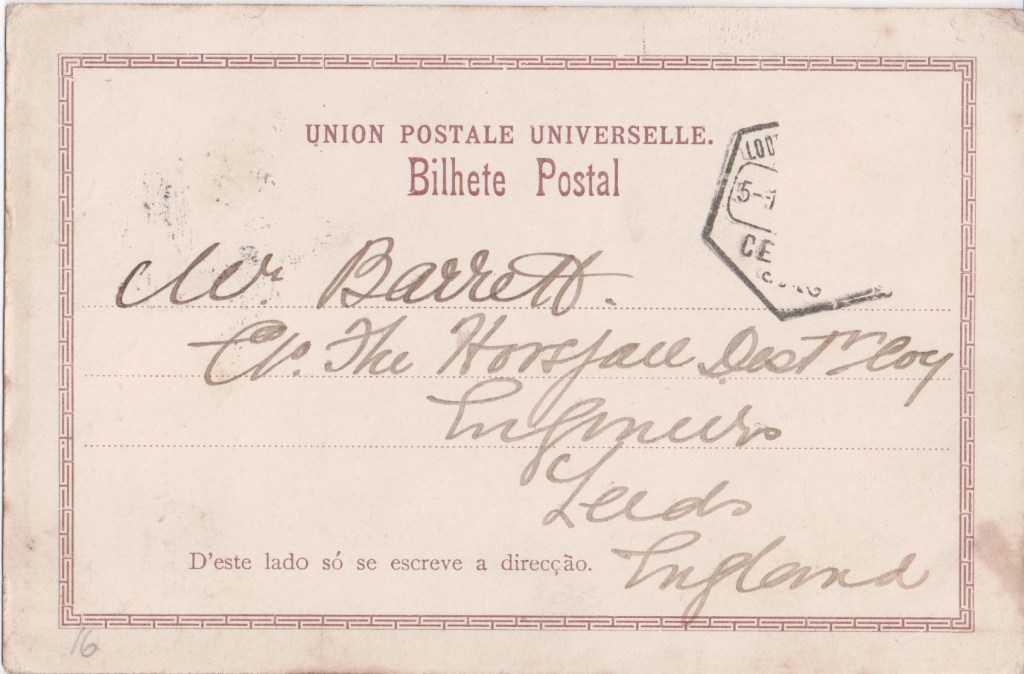 UNION POSTALE UNIVERSELLE.
Bilhete Postal
5-
CE
Mr. Barrett.
C/o. The Horsfall Destr Coy
Engineers
Leeds
D'este lado só se escreve a direcção.
England
16